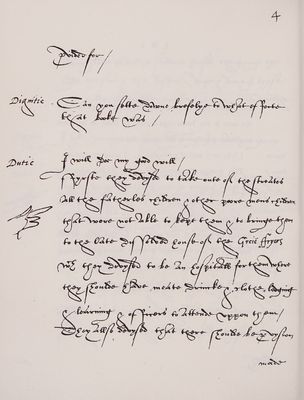 4
Dignitie Can you sette downe brefelye to what effecte
that booke was /
Dutie I will doe my good will /
Fyrste they devysed to take oute of the streates
all the fatherles children & other poore mens children
that were not able to kepe them & to bringe them
to the late dissolved house of the Greie ffryers
wch they devysed to be an hospitall for them where
they shoulde have meate drincke & clothes lodging
& learning & officers to attende uppon them /
They also devysed that there shoulde be
made